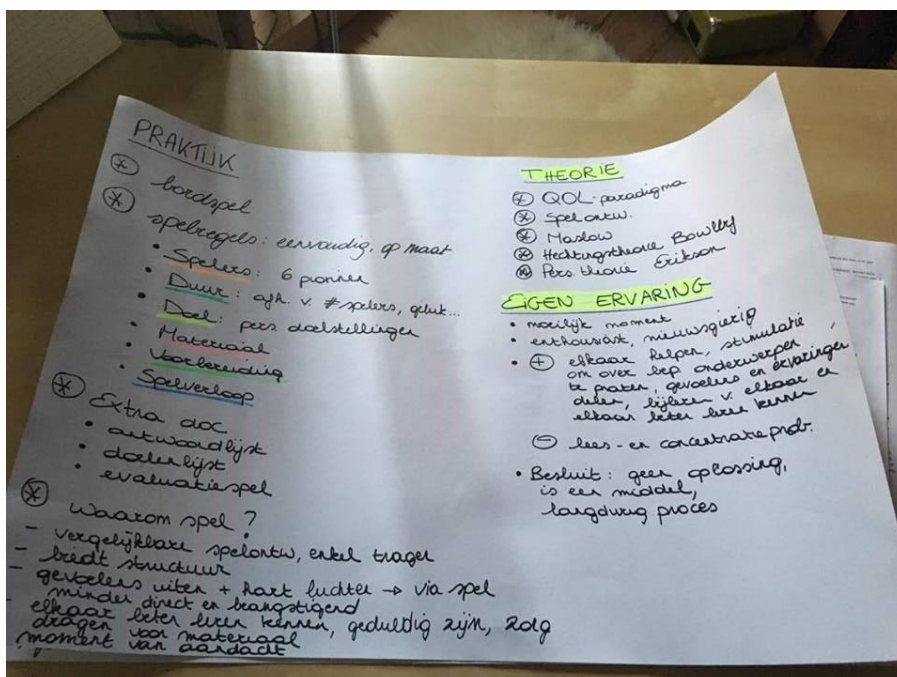 PRAKTIJK
⊛ bordspel
⊛ spelregels: eenvoudig, op maat
• Spelers: 6 pionnen
• Duur: afh. v. #spelers, geluk...
• Doel: pers doelstellingen
• Materiaal
• Voorbereiding
• Spelverloop
⊛ Extra doc
• antwoordlijst
• doelenlijst
• evaluatiespel
⊛ Waarom spel?
- vergelijkbare spelontw, enkel trager
- biedt structuur
- gevoelens uiten + hart luchten → via spel
minder direct en beangstigend
- elkaar beter leren kennen, geduldig zijn, zorg
dragen voor materiaal
moment van aandacht
THEORIE
⊛ QOL-paradigma
⊛ Spelontw.
⊛ Maslow
⊛ Hechtingstheorie Bowlby
⊛ Pers. theorie Erikson
EIGEN ERVARING
• moeilijk moment
• enthousiast, nieuwsgierig
• ⊕ elkaar helpen, stimulatie
om over bep onderwerpen
te praten, gevoelens en ervaringen
delen, bijleren v. elkaar en
elkaar beter leren kennen
⊖ lees- en concentratieprob.
• Besluit: geen oplossing,
is een middel,
langdurig proces